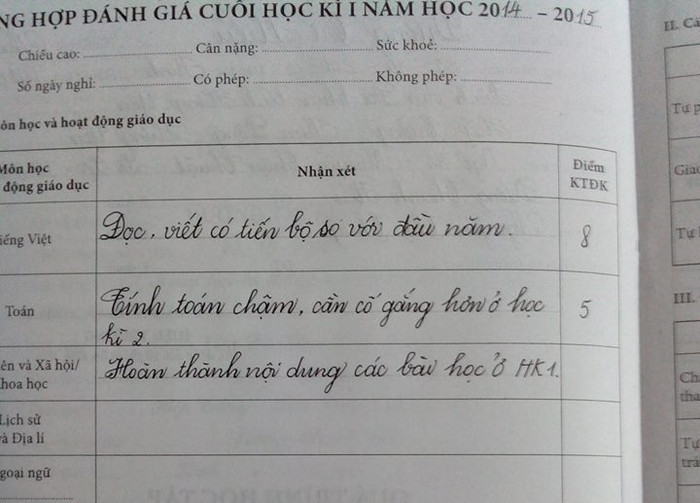 NG HỢP ĐÁNH GIÁ CUỐI HỌC KÌ I NĂM HỌC 2014 - 2015
Chiều cao: Cân nặng: Sức khoẻ:
Số ngày nghỉ: Có phép: Không phép:
ôn học và hoạt động giáo dục
Môn học
động giáo dục
Nhận xét
Điểm
KTĐK
iếng Việt
Đọc, viết có tiến bộ so với đầu năm.
8
Toán
Tính toán chậm, cần cố gắng hơn ở học
kì 2.
5
ên và Xã hội/
hoa học
Hoàn thành nội dung các bài học ở HK1.
Lịch sử
à Địa lí
goại ngữ
II. Cá
Tự p
Giao
Tự
III.
Ch
tha
Tự
trá